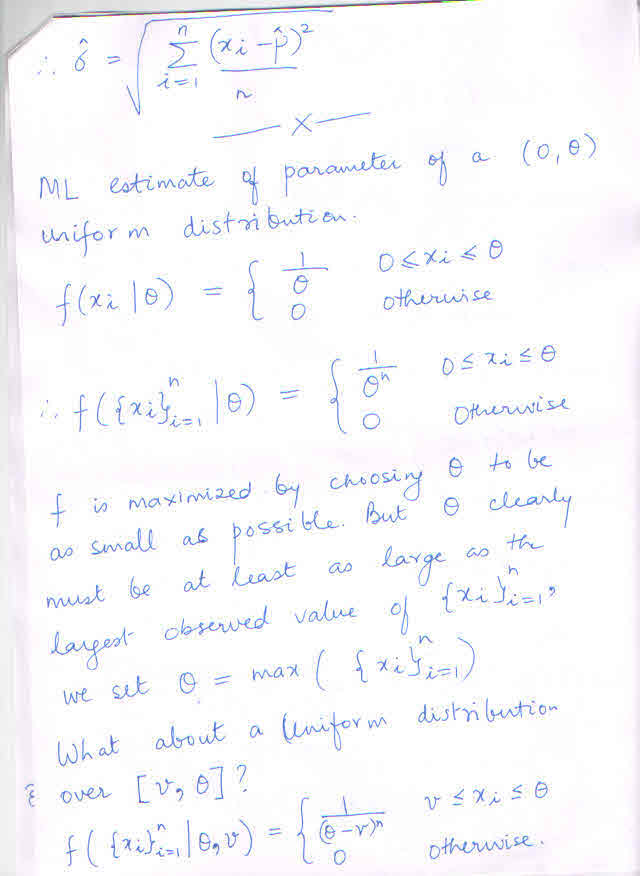 ∴ σ̂ = √( Σ_{i=1}^{n} (xi − μ̂)² / n )
—— × ——
ML estimate of parameter of a (0, θ)
uniform distribution.
f(xi | θ) = { 1/θ 0 ≤ xi ≤ θ
0 otherwise
∴ f({xi}_{i=1}^{n} | θ) = { 1/θⁿ 0 ≤ xi ≤ θ
0 Otherwise
f is maximized by choosing θ to be
as small as possible. But θ clearly
must be at least as large as the
largest observed value of {xi}_{i=1}^{n},
we set θ = max ( {xi}_{i=1}^{n} )
What about a Uniform distribution
over [v, θ]?
f({xi}_{i=1}^{n} | θ, v) = { 1/(θ−v)ⁿ v ≤ xi ≤ θ
0 otherwise.